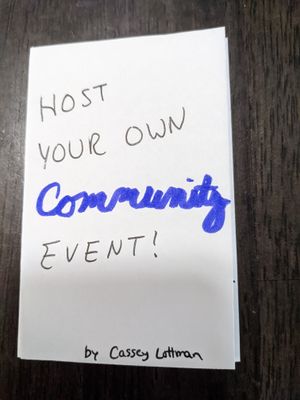 HOST
YOUR OWN
Community
EVENT!
by Cassey Lottman